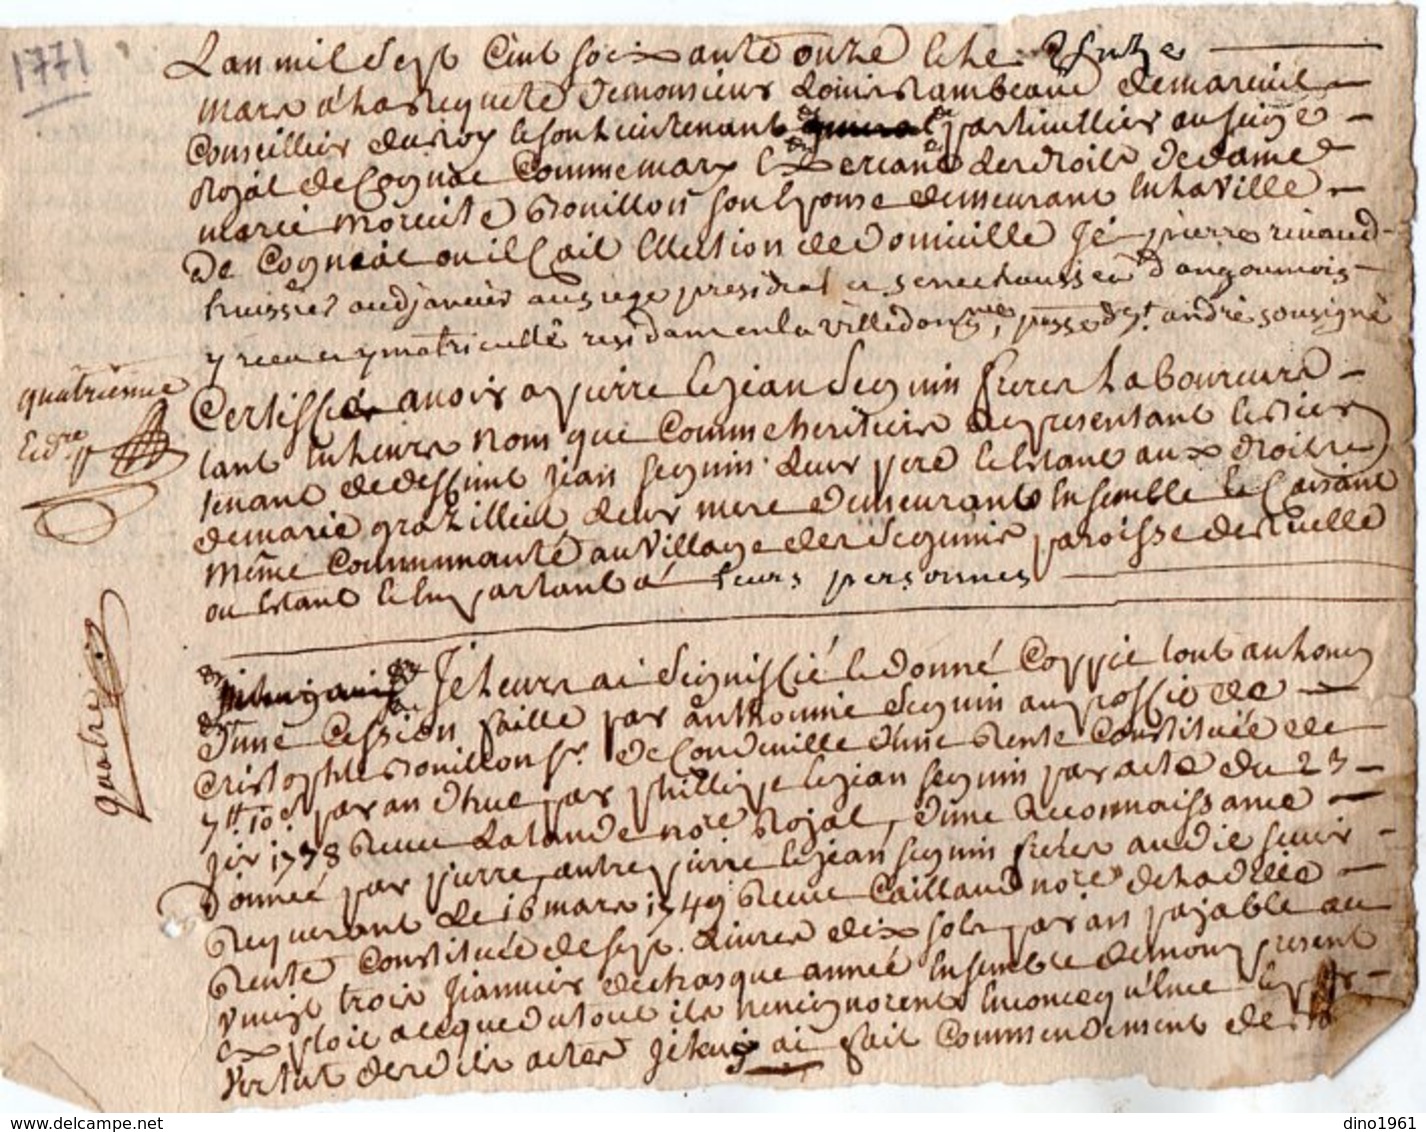 1771
Lan mil Sept Cent soixante onze le
mars a la Requete de monsieur Louis Rambeaud de mareuil
Conseillier du Roy lieutenant particullier au siege
Royal de Cognac Comme mary Exercant les droits de dame
marie Bouillon son Epouse demeurant En la ville
De Cognac ou il fait Election de domicille Je pierre rinaud
huissier audiancier au siege presidial et senechaussee d'angoumois
y receu et ymatricullé residant en la ville paroisse de st. andré sousigné
quatrieme
Certiffie avoir a pierre Et jean Seguin freres Laboureurs
tant En leurs nom que Comme heritiers Representant Et
tenant de deffunt jean Seguin leur pere Et Estant aux droits
de marie leur mere demeurant Ensemble Et faisant
même Communauté au village des Seguins paroisse de Ruelle
ou Estant Et En parlant a leurs personnes
quatre
Je leurs ai Signiffié Et donné Coppie tout au long
D'une Cession faitte par anthoinne Seguin au proffit de
Cristophle Bouillon Sr. de Condeville d'une Rente Constituée de
7tt. 10s. par an due par phillipe Et jean Seguin par acte du 23
jer 1738 Receu Lalande nore Royal, d'une Reconnaissance
Donnée par pierre, autre pierre Et jean Seguin freres audit sieur
Requerant de 16 mars 1749 Receu Caillaud nore de la ditte
Rente Constituée de sept Livres dix sols par an payable au
vingt trois Janvier de chasque année Ensemble de mon present
Exploit a ce que du tout ils n'en ignorent Encore qu'En
vertut desdits actes Je leurs ai fait Commendement de
dino1961